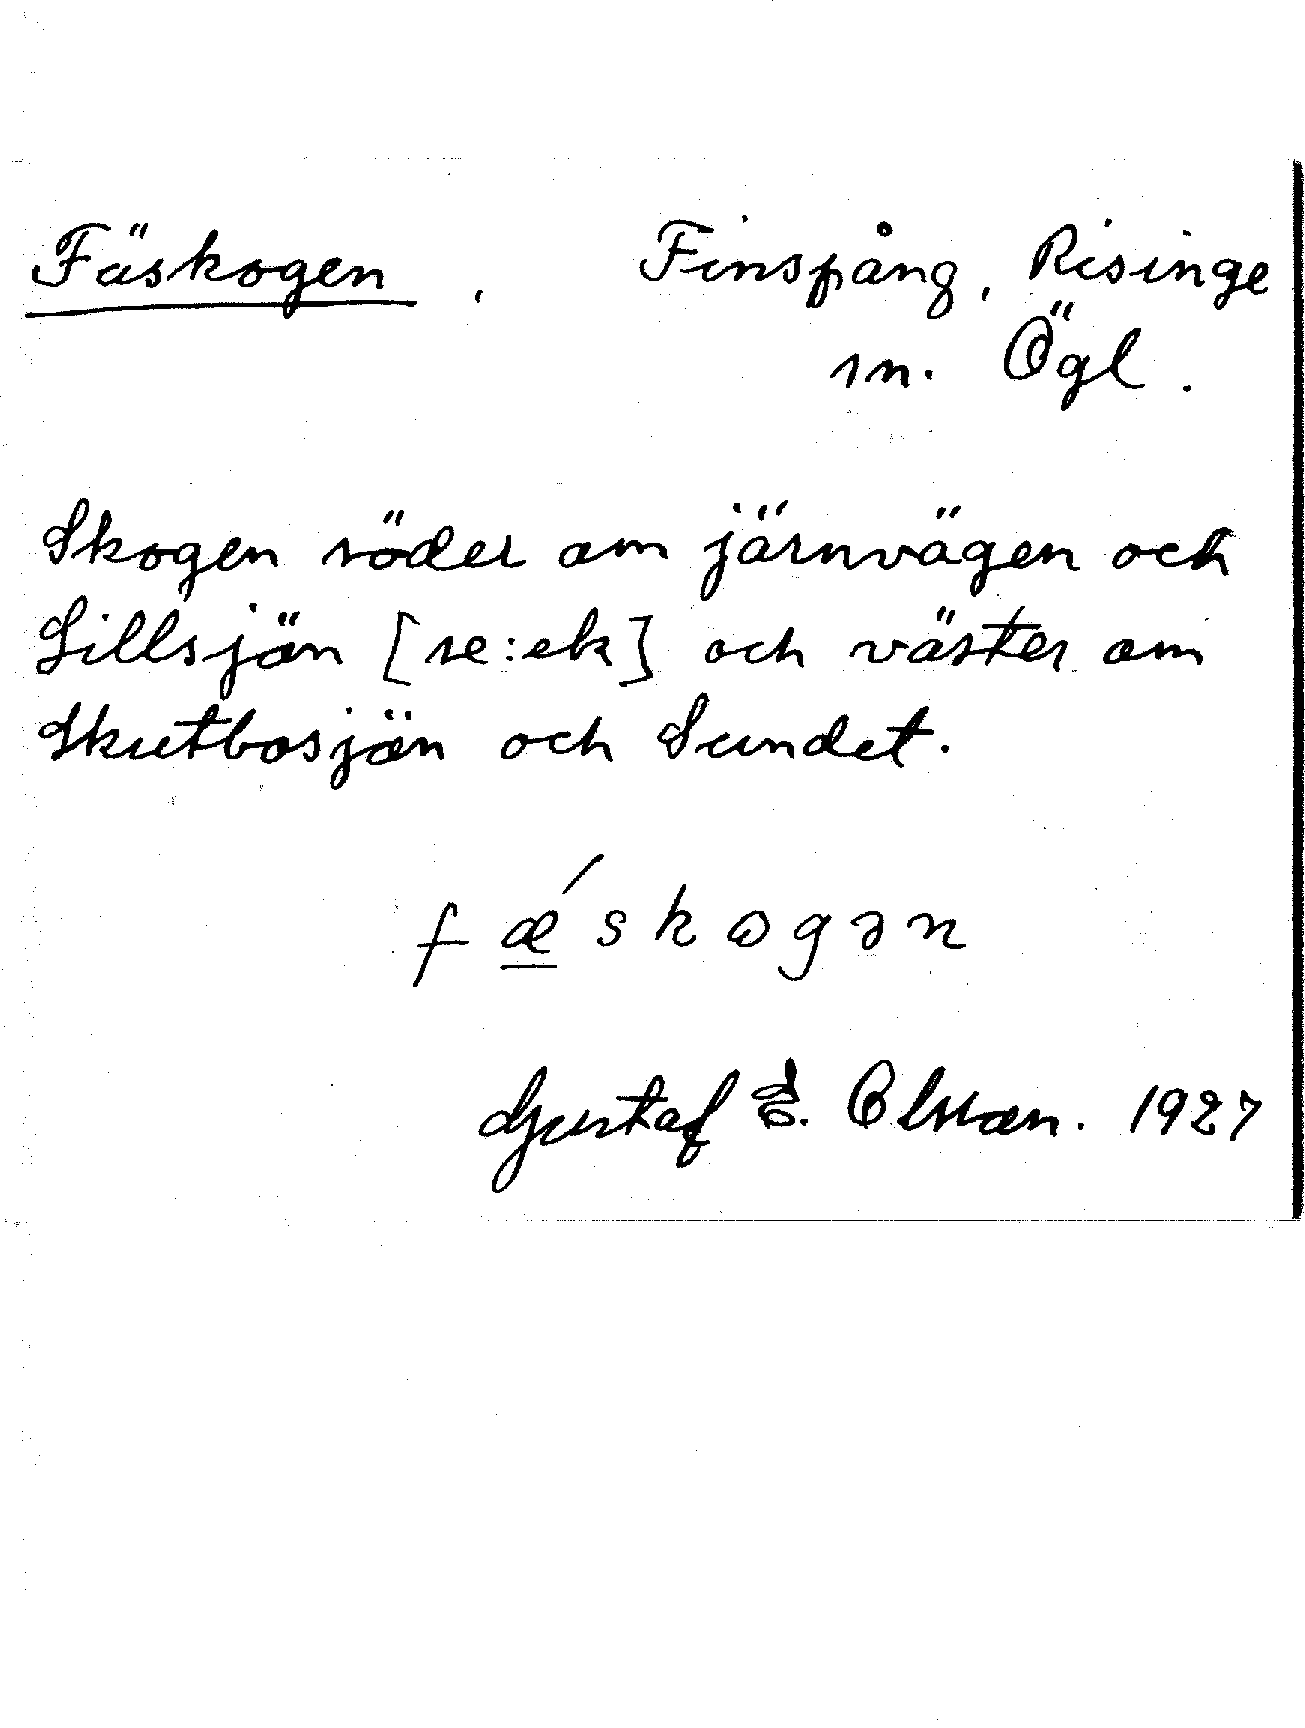 Fäskogen, Finspång, Risinge
sn. Ögl.
Skogen söder om järnvägen och
Lillsjön [se:ek] och väster om
Skutbosjön och Sundet.
fǽskogən
Gustaf E. Olsson. 1927